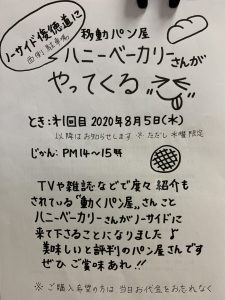 ノーサイド優徳道に
西側 駐車場
移動パン屋
ハニーベーカリーさんが
やってくる
とき:第1回目 2020年8月5日(水)
以降はお知らせします ※ただし 水曜 限定
じかん:PM14~15時
TVや雑誌などで度々 紹介も
されている"動くパン屋"さん こと
ハニーベーカリーさんがノーサイドに
来て下さることになりました♪
美味しいと評判のパン屋さんです
ぜひ ご賞味あれ!!
※ご購入希望の方は 当日お代金をおもれなく